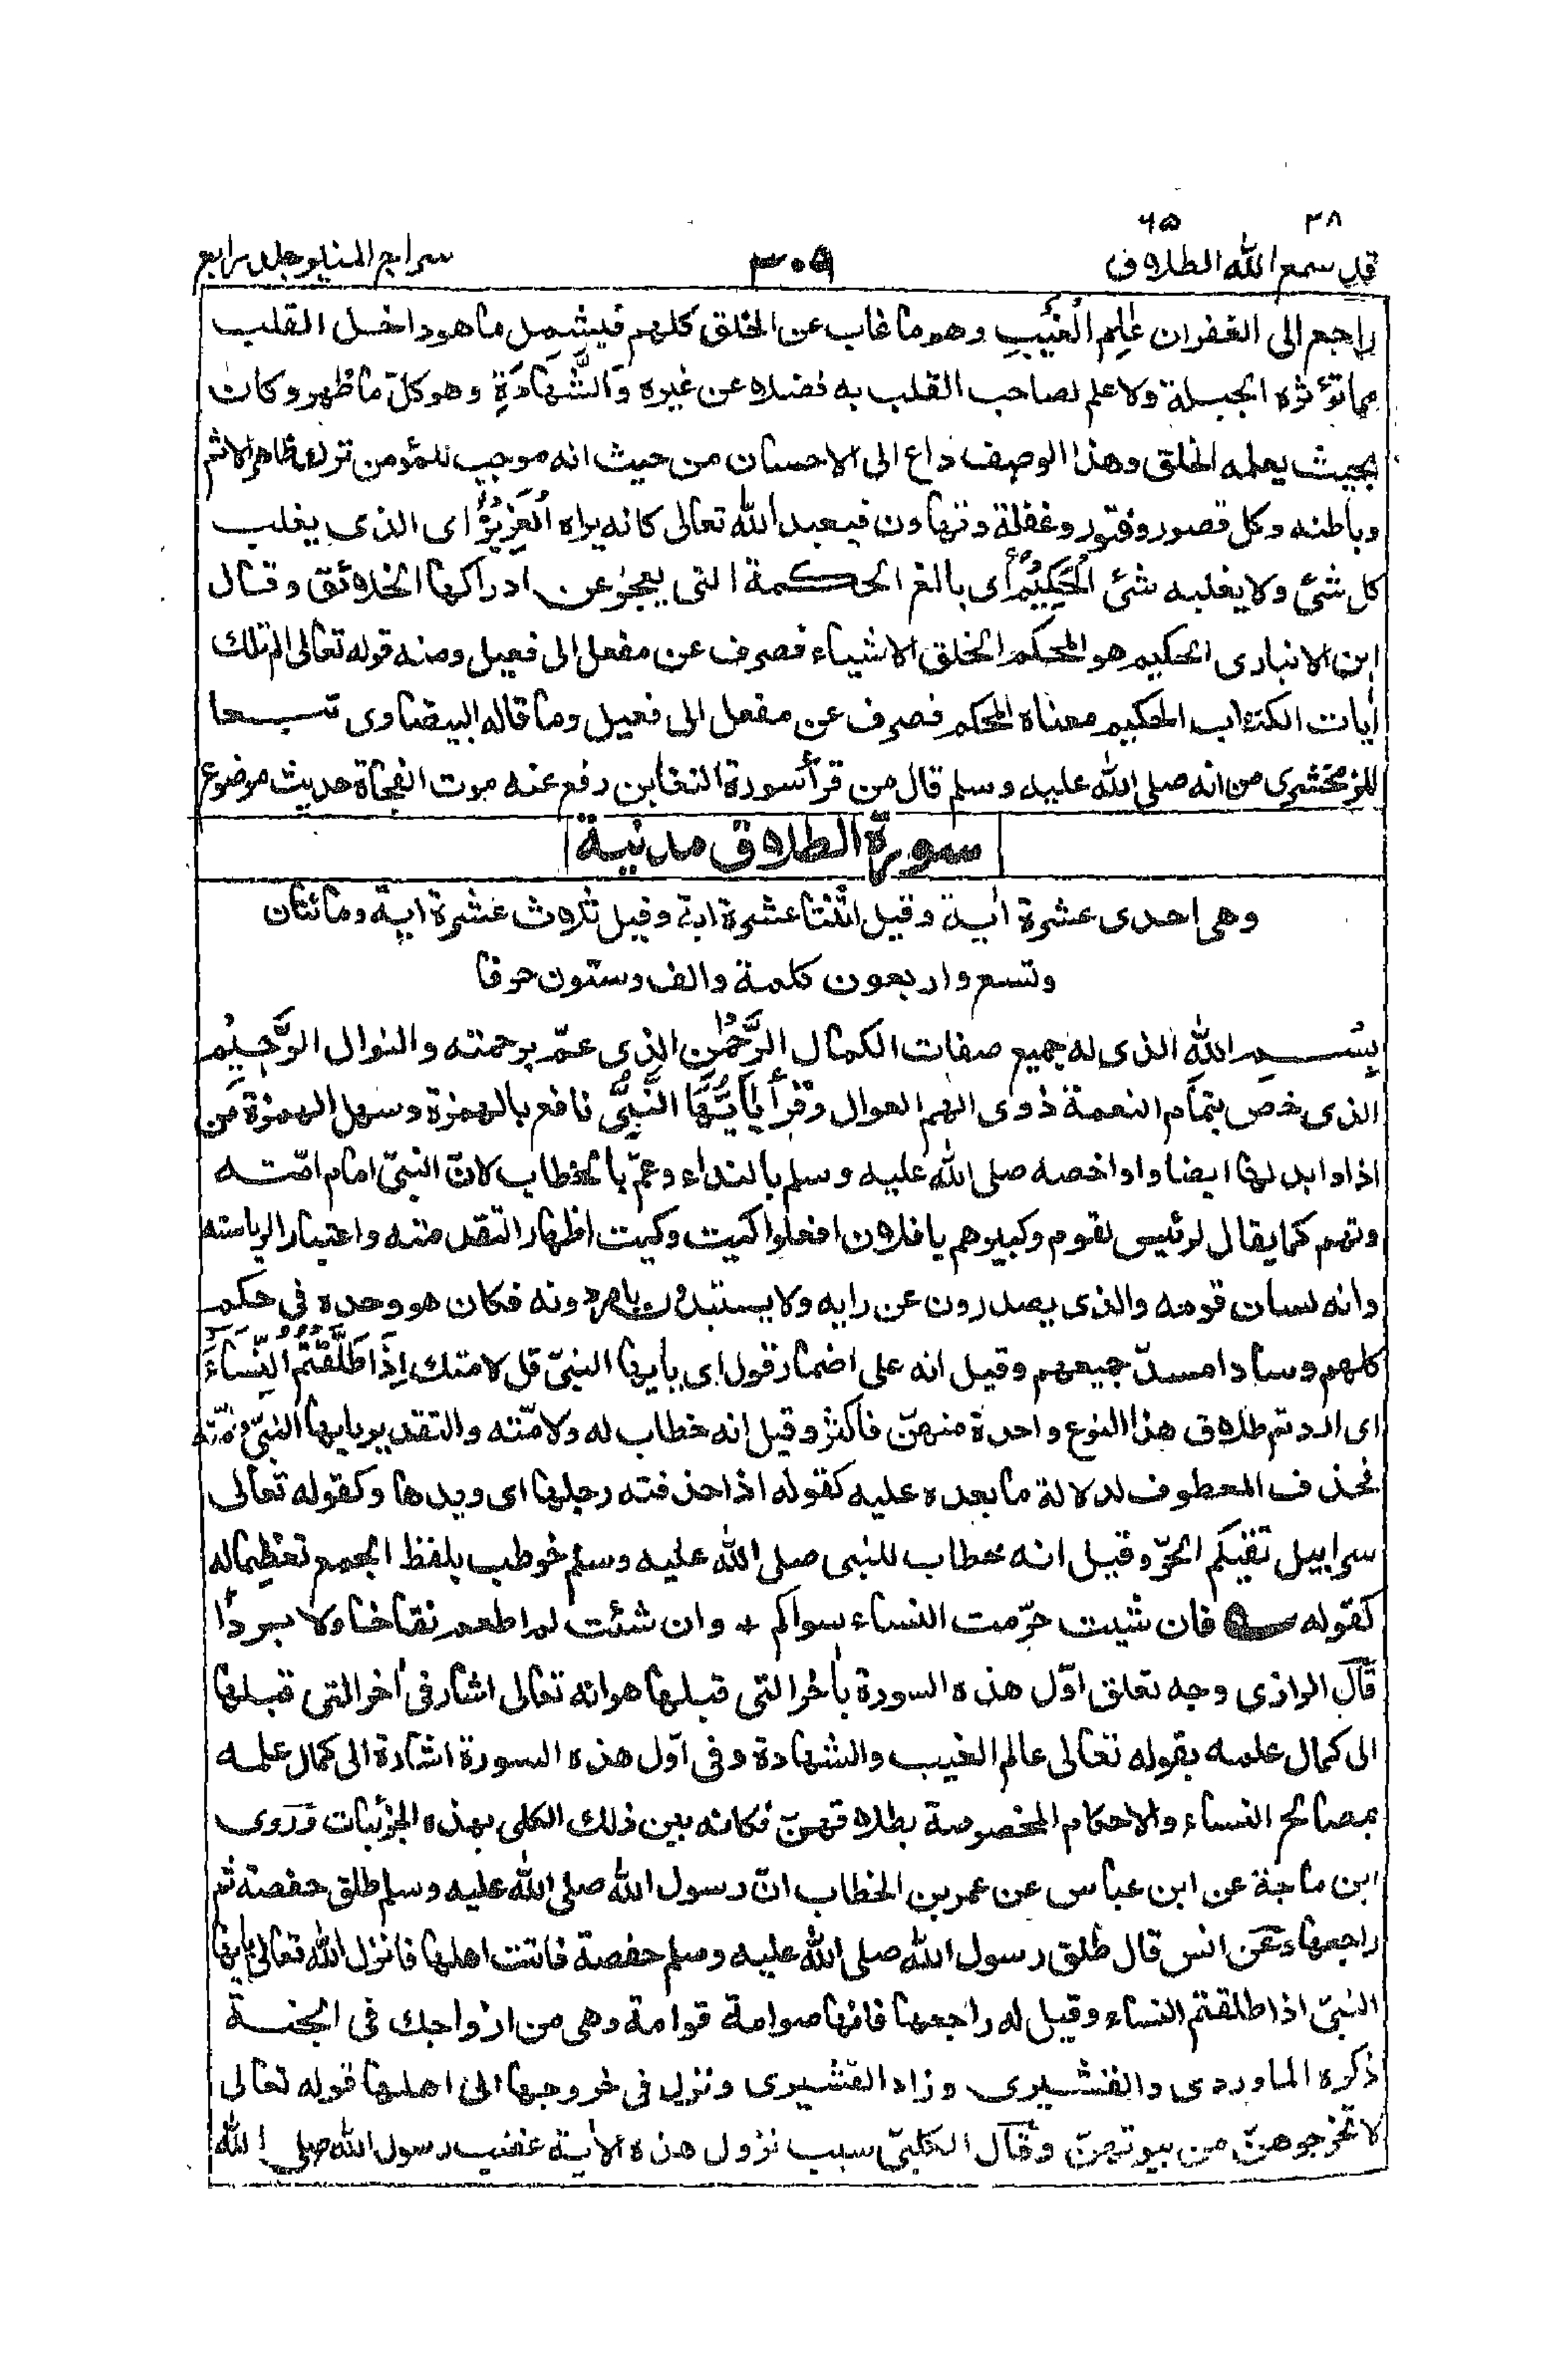 ٢٨ ٦٥
قد سمع الله الطلاق ٣٠٩ سراج المنير جلد رابع
راجع الى الغفران عٰلِم الْغَيْبِ وهو ما غاب عن الخلق كلهم فيشمل ما هو داخل القلب
مما تؤثره الجبلة ولا علم لصاحب القلب به فضلا عن غيره وَالشَّهَادَةِ وهو كلّ ما ظهر وكان
بحيث يعلمه الخلق وهذا الوصف داع الى الاحسان من حيث انه موجب للمؤمن ترك ظاهر الاثم
وباطنه وكل قصور وفتور وغفلة وتهاون فيعبد الله تعالى كانه يراه الْعَزِيْزُ اى الذى يغلب
كل شئ ولا يغلبه شئ الْحَكِيْمُ أى بالغ الحكمة التى يعجز عن ادراكها الخلائق وقال
ابن الانبارى الحكيم هو المحكم الخلق الاشياء فصرف عن مفعل الى فعيل ومنه قوله تعالى الم تلك
أيات الكتاب الحكيم معناه المحكم فصرف عن مفعل الى فعيل وما قاله البيضاوى تبعا
للزمخشرى من انه صلى الله عليه وسلم قال من قرأ سورة التغابن رفع عنه موت الفجاة حديث موضوع
سورة الطلاق مدنية
وهى احدى عشرة أية وقيل اثنتا عشرة اية وقيل ثلاث عشرة اية ومائتان
وتسع واربعون كلمة والف وستون حرفا
بِسْمِ اللهِ الذى له جميع صفات الكمال الرَّحْمٰنِ الذى عمّ برحمته والنوال الرَّحِيْمِ
الذى خص بتمام النعمة ذوى الهمم العوال وقرأ يٰاَيُّهَا النَّبِىُّ نافع بالهمزة وسهل الهمزة من
اذا وابدلها ايضا واوا خصه صلى الله عليه وسلم بالنداء وعمّ بالخطاب لانّ النبىّ امام امّته
وتهم كما يقال لرئيس لقوم وكبيرهم يا فلان افعلوا كيت وكيت اظهار التقدمته واعتبار الرياسته
وانه لسان قومه والذى يصدرون عن رايه ولا يستبدون بامر دونه فكان هو وحده فى حكم
كلهم وسادا مسدّ جميعهم وقيل انه على اضمار قول اى يأيها النبىّ قل لامتك اِذَا طَلَّقْتُمُ النِّسَاءَ
اى اردتم طلاق هذا النوع واحدة منهنّ فاكثر وقيل انه خطاب له ولامّته والتقدير يايها النبىّ وامّته
فحذف المعطوف لدلالة ما بعده عليه كقوله اذا حذفته رجلها اى ويدها وكقوله تعالى
سرابيل تقيكم الحرّ وقيل انه خطاب للنبى صلى الله عليه وسلم خوطب بلفظ الجمع تعظيما له
كقوله فان شيت حرّمت النساء سواكم + وان شئت لم اطعم نقاخا ولا بردًا
قال الرازى وجه تعلق اوّل هذه السورة بأخر التى قبلها هو انه تعالى اشار فى أخر التى قبلها
الى كمال علمه بقوله تعالى عالم الغيب والشهادة وفى اوّل هذه السورة اشارة الى كمال علمه
بمصالح النساء والاحكام المخصوصة بطلاقهنّ فكانه بين ذلك الكلى بهذه الجزئيات وروى
ابن ماجة عن ابن عباس عن عمر بن الخطاب انّ رسول الله صلى الله عليه وسلم طلق حفصة ثم
راجعها وعن انس قال طلق رسول الله صلى الله عليه وسلم حفصة فاتت اهلها فانزل الله تعالى يايها
النبىّ اذا طلقتم النساء وقيل له راجعها فانها صوامة قوامة وهى من ازواجك فى الجنة
ذكره الماوردى والقشيرى وزاد القشيرى ونزل فى خروجها الى اهلها قوله تعالى
لا تخرجوهنّ من بيوتهنّ وقال الكلبىّ سبب نزول هذه الأية غضب رسول الله صلى الله